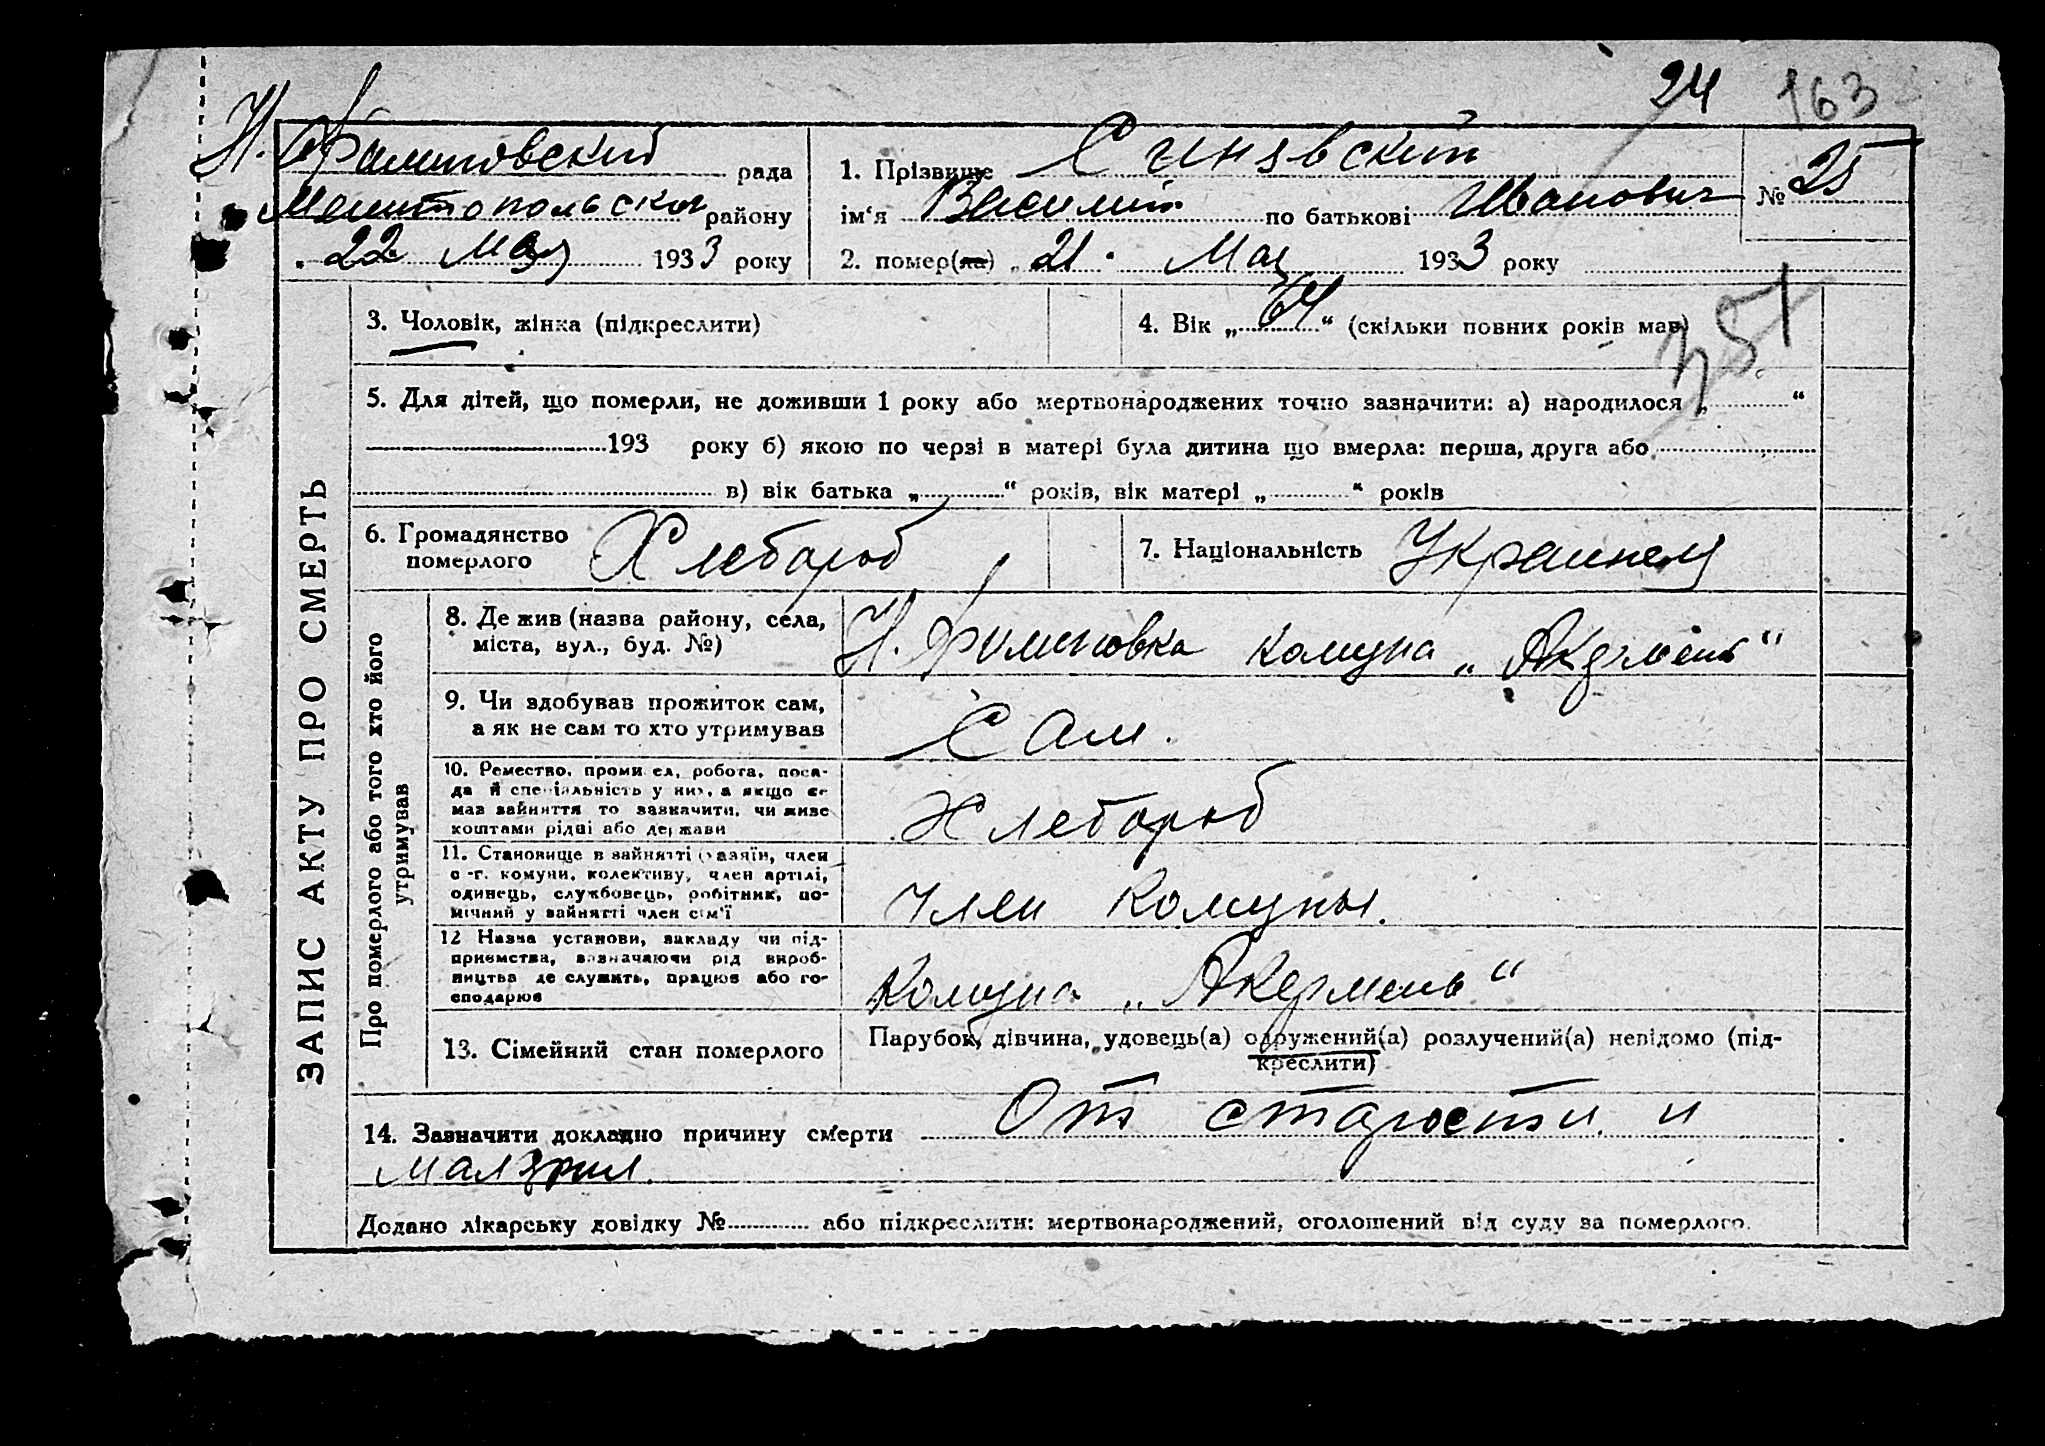 24 163
Н. Филиповский рада
Мелитопольского району
„22 Мая 1933 року
1. Прізвище Синявский
ім‘я Василий по батькові Иванович
№ 25
2. помер(ла) „21. Мая 1933 року
351
ЗАПИС АКТУ ПРО СМЕРТЬ
3. Чоловік, жінка (підкреслити)
4. Вік „64“ (скільки повних років мав)
5. Для дітей, що померли, не доживши 1 року або мертвонароджених точно зазначити: а) народилося „ “
193 року б) якою по черзі в матері була дитина що вмерла: перша, друга або
в) вік батька „ “ років, вік матері „ “ років
6. Громадянство
померлого
Хлебороб
7. Національність
Украинец
Про померлого або того хто його
утримував
8. Де жив (назва району, села,
міста, вул., буд. №)
Н. Филиповка комуна „Акермень“
9. Чи здобував прожиток сам,
а як не сам то хто утримував
Сам.
10. Ремество, промисел, робота, поса-
да й спеціальність у них, а якщо не
мав зайняття то зазначити, чи живе
коштами рідні або держави
Хлебороб
11. Становище в зайнятті (хазяїн, член
с.-г. комуни, колективу, член артілі,
одинець, службовець, робітник, по-
мічний у зайнятті член сім‘ї
Член Комуны.
12 Назва установи, закладу чи під-
приємства, зазначаючи рід вироб-
ництва де служить, працює або го-
сподарює
Комуна „Акермень“
13. Сімейний стан померлого
Парубок, дівчина, удовець(а) одружений(а) розлучений(а) невідомо (під-
креслити)
14. Зазначити докладно причину смерти От старости и
малярии.
Додано лікарську довідку № або підкреслити: мертвонароджений, оголошений від суду за померлого.